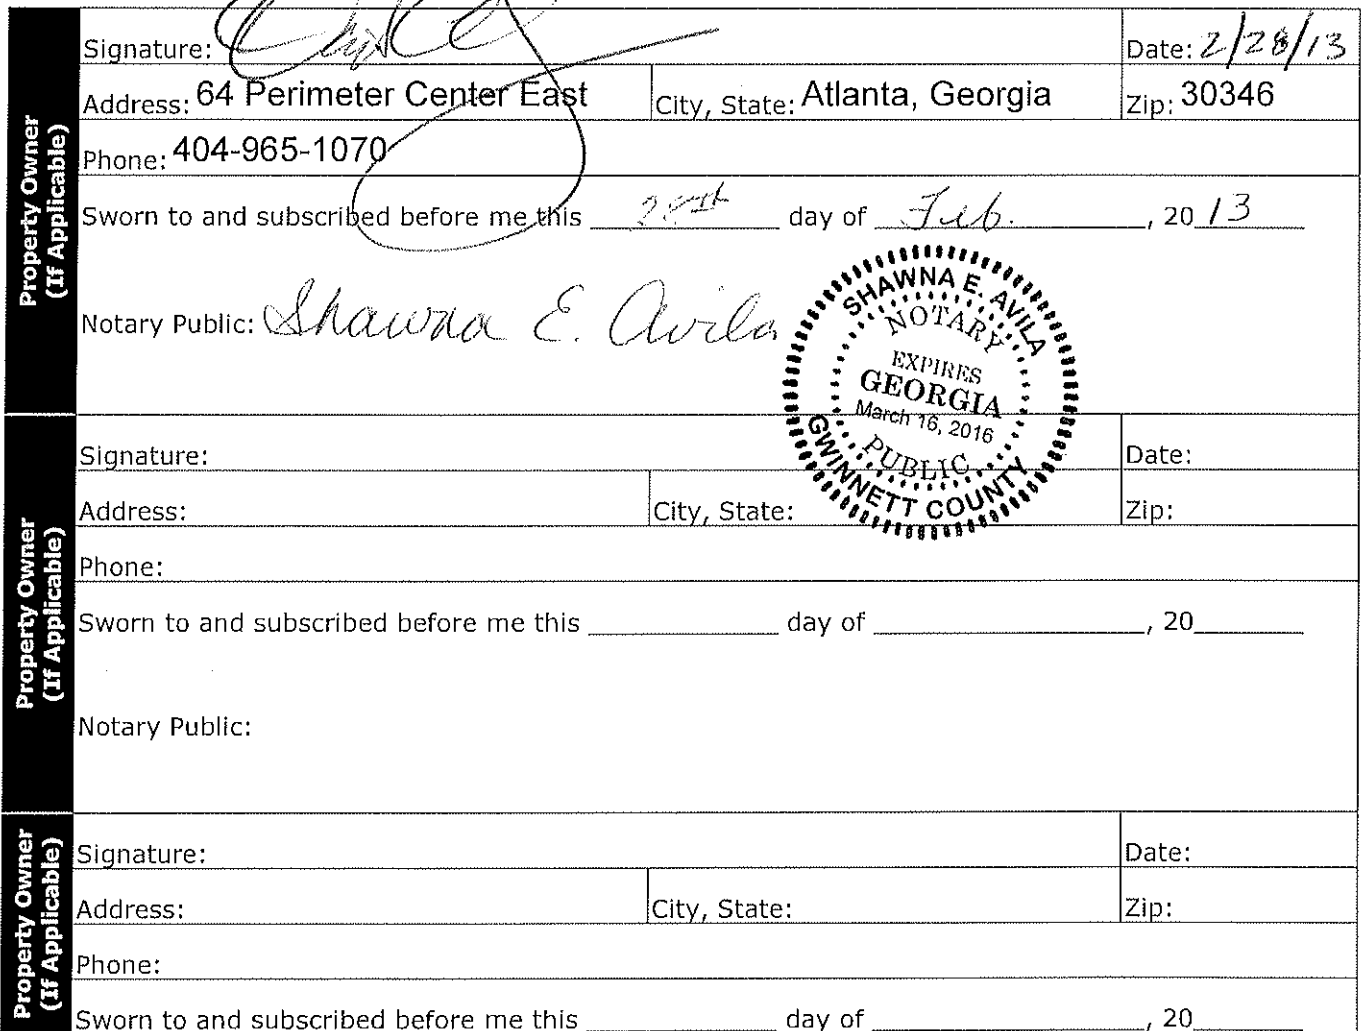 Property Owner
(If Applicable)
Signature: Date: 2/28/13
Address: 64 Perimeter Center East City, State: Atlanta, Georgia Zip: 30346
Phone: 404-965-1070
Sworn to and subscribed before me this 28th day of Feb. , 20 13
Notary Public: Shawna E. Avila
SHAWNA E. AVILA
NOTARY
EXPIRES
GEORGIA
March 16, 2016
PUBLIC
GWINNETT COUNTY
Property Owner
(If Applicable)
Signature: Date:
Address: City, State: Zip:
Phone:
Sworn to and subscribed before me this ____ day of ____, 20____
Notary Public:
Property Owner
(If Applicable)
Signature: Date:
Address: City, State: Zip:
Phone:
Sworn to and subscribed before me this ____ day of ____, 20____